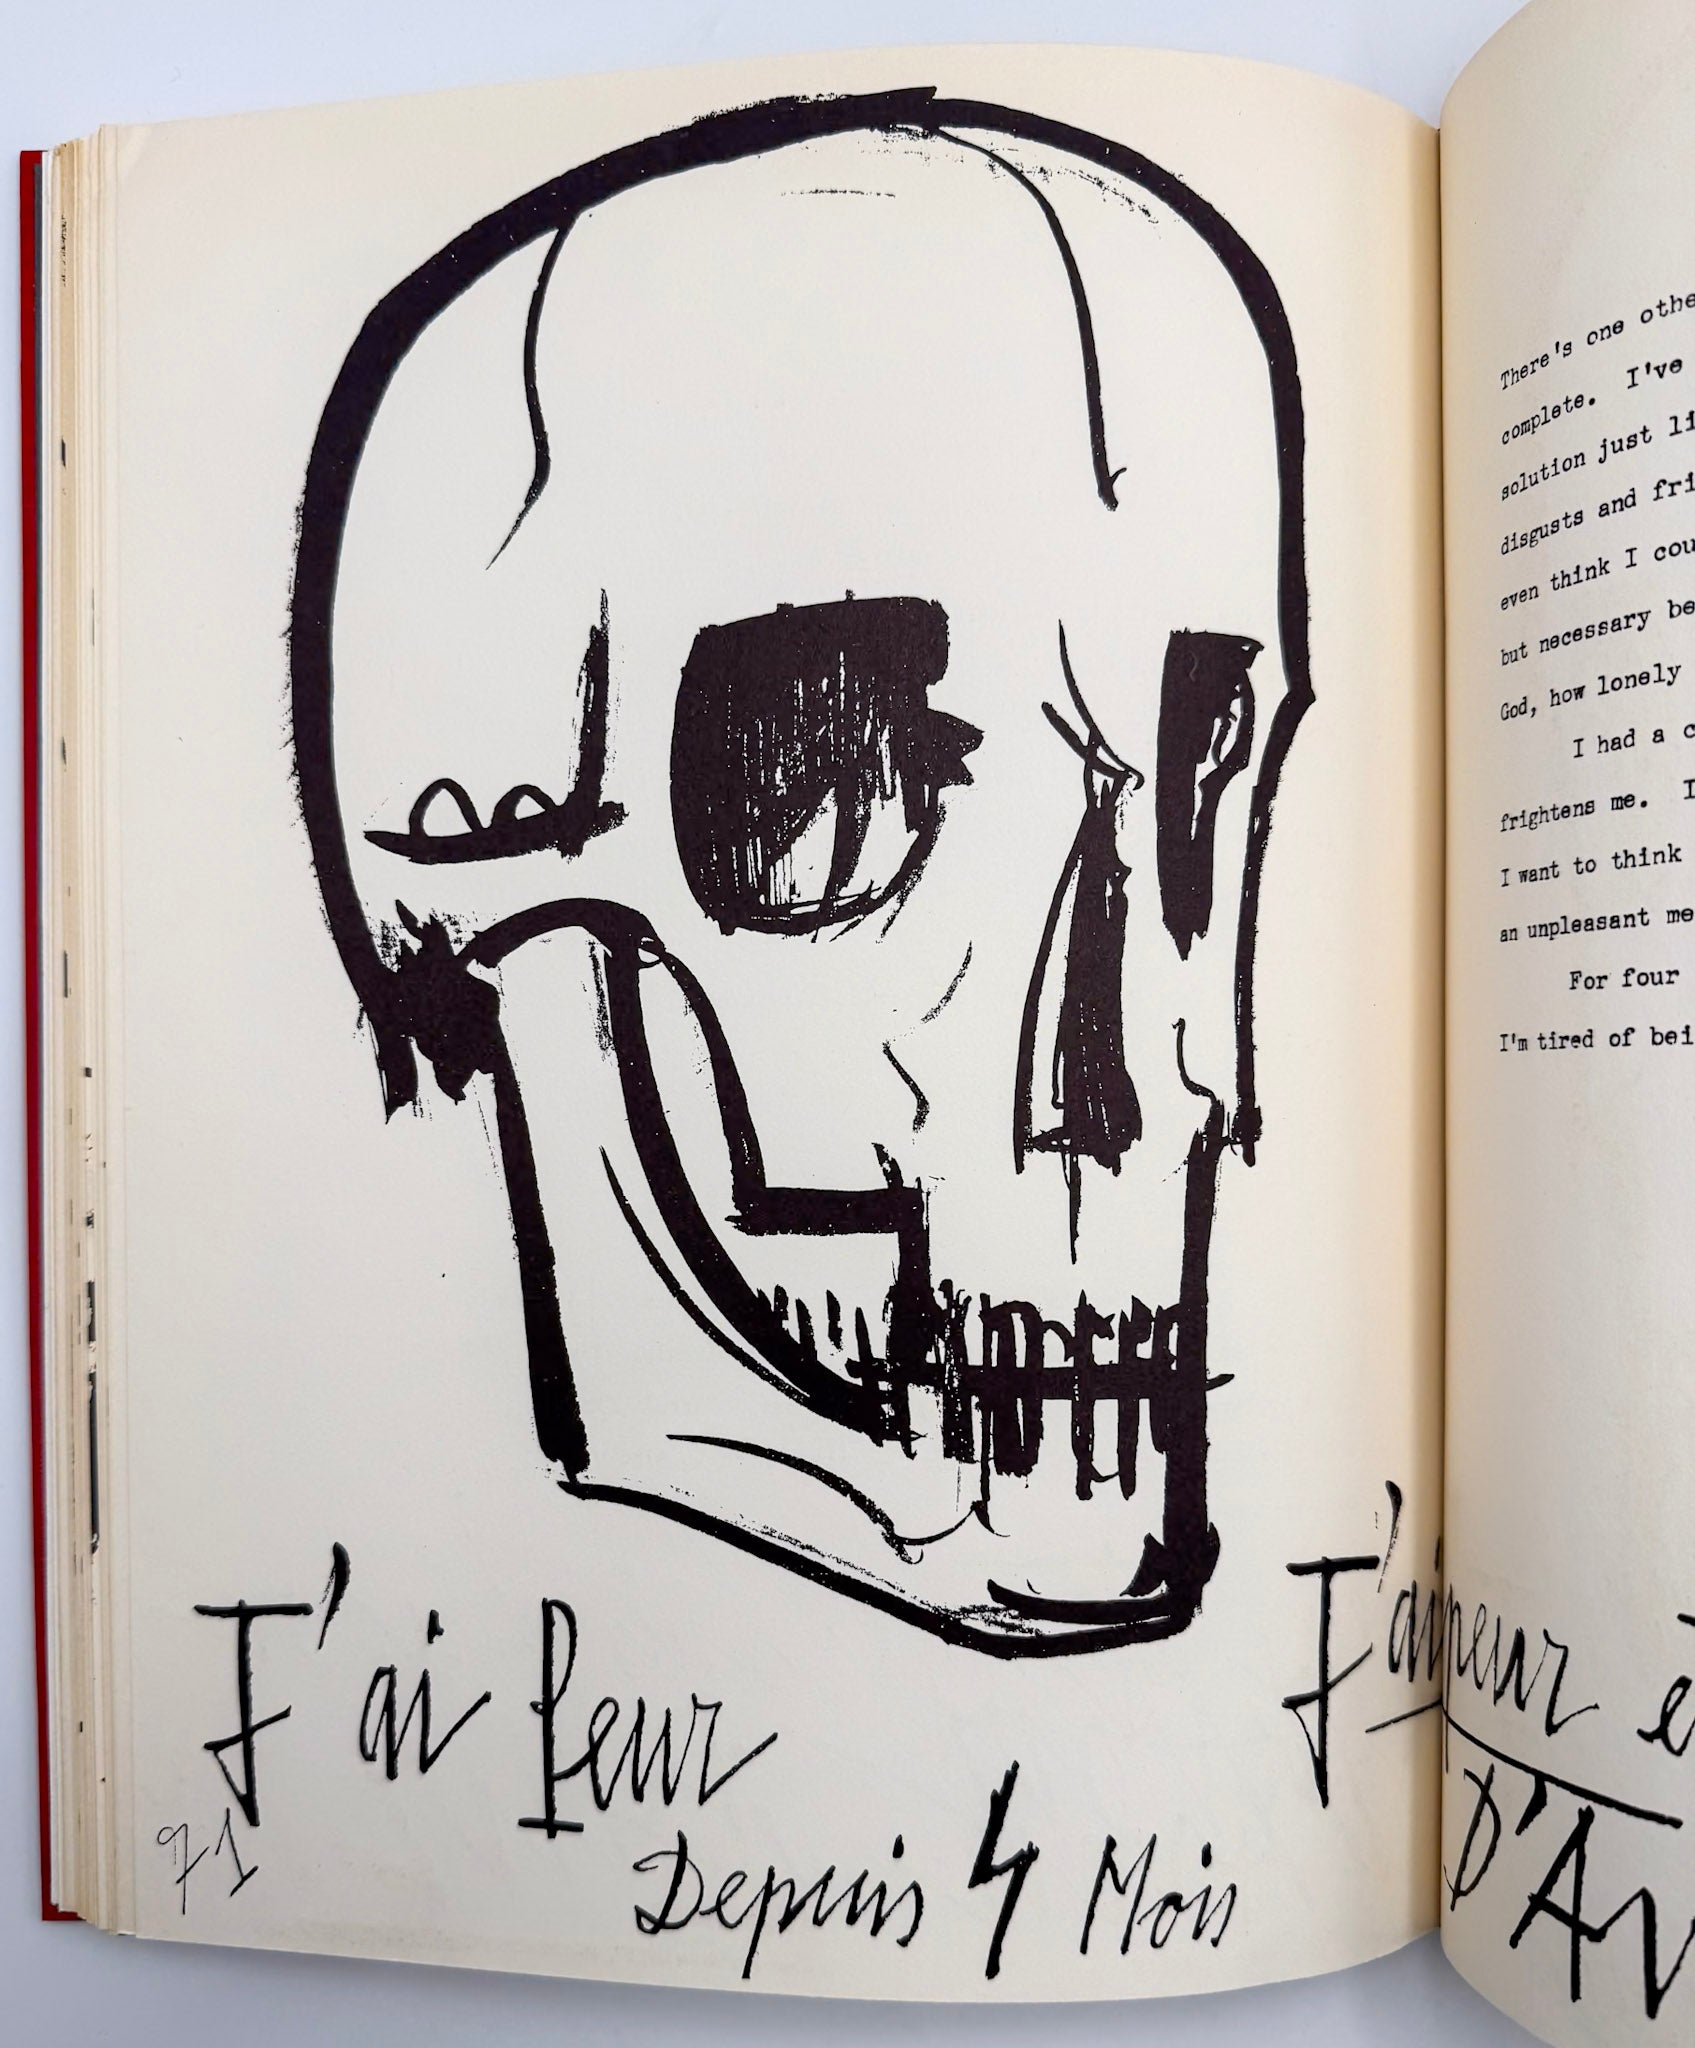 J'ai peur
Depuis 4 Mois
71
There's one othe
complete. I've
solution just li
disgusts and fri
even think I cou
but necessary be
God, how lonely
I had a c
frightens me. I
I want to think
an unpleasant me
For four
I'm tired of bei
J'ai peur e
D'Av